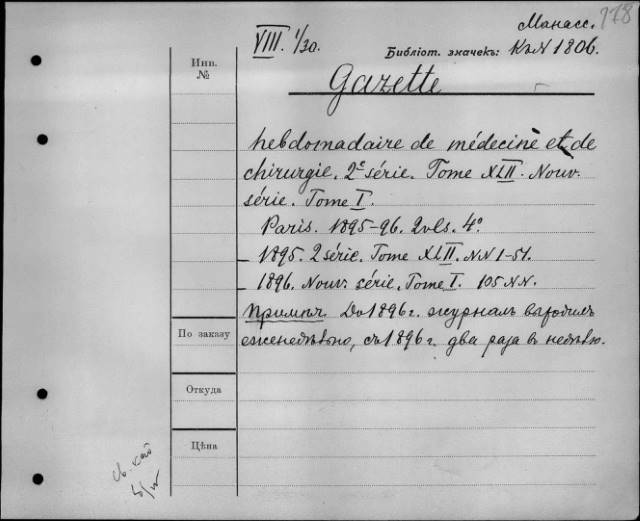 178
Манасс.
VIII. 1/30.
Библіот. значекъ: КъN 1806.
Инв.
№
Gazette
hebdomadaire de médecine et de
chirurgie. 2e série. Tome XLII. Nouv.
série. Tome I.
Paris. 1895-96. 2 vls. 4º
— 1895. 2 série. Tome XLII. NN 1-51.
— 1896. Nouv. série, Tome I. 105 NN.
Примѣч. До 1896 г. журналъ выходилъ
еженедѣльно, съ 1896 г. два раза въ недѣлю.
По заказу
Откуда
Цѣна